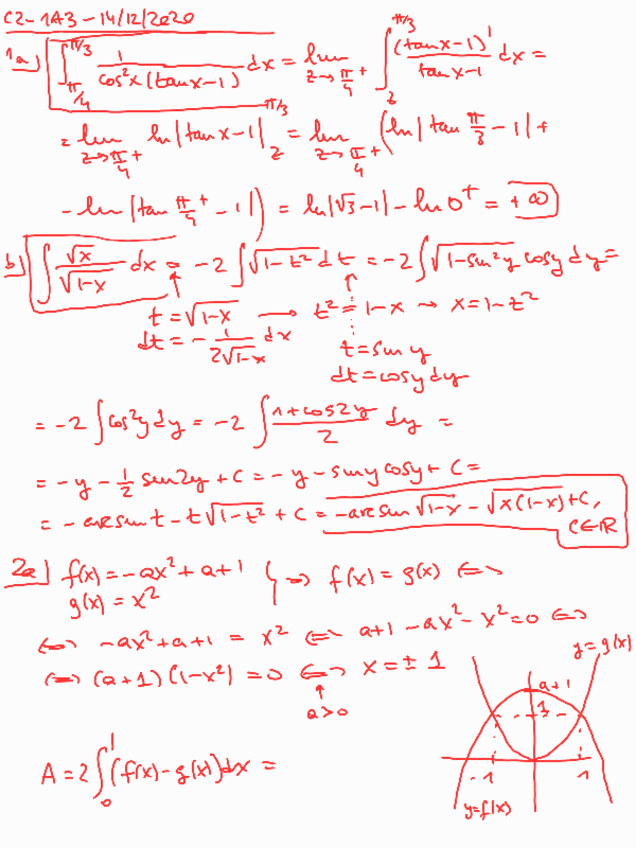 C2-1A3-14/12/2020
1a) ∫_{π/4}^{π/3} 1/(cos²x(tanx-1)) dx = lim_{z→π/4+} ∫_z^{π/3} (tanx-1)'/(tanx-1) dx =
= lim_{z→π/4+} ln|tanx-1| |_z^{π/3} = lim_{z→π/4+} (ln|tan π/3 - 1| +
- ln|tan π/4⁺ - 1|) = ln|√3-1| - ln 0⁺ = +∞
b) ∫ √x/√(1-x) dx = -2 ∫ √(1-t²) dt = -2 ∫ √(1-sin²y) cosy dy =
t = √(1-x) → t² = 1-x → x = 1-t²
dt = - 1/(2√(1-x)) dx
t = sin y
dt = cosy dy
= -2 ∫ cos²y dy = -2 ∫ (1+cos2y)/2 dy =
= -y - 1/2 sin2y + C = -y - siny cosy + C =
= -arcsin t - t√(1-t²) + C = -arcsin √(1-x) - √(x(1-x)) + C,
C∈ℝ
2a) f(x) = -ax² + a + 1
g(x) = x² } ⇒ f(x) = g(x) ⇔
⇔ -ax² + a + 1 = x² ⇔ a+1 - ax² - x² = 0 ⇔
⇔ (a+1)(1-x²) = 0 ⇔ x = ± 1
↑
a>0
y=g(x)
a+1
1
-1 1
y=f(x)
A = 2 ∫_0^1 (f(x) - g(x)) dx =